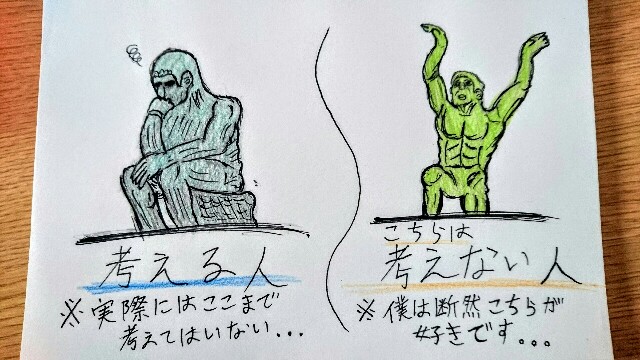 考える人
※実際にはここまで
考えてはいない...
こちらは
考えない人
※僕は断然こちらが
好きです...